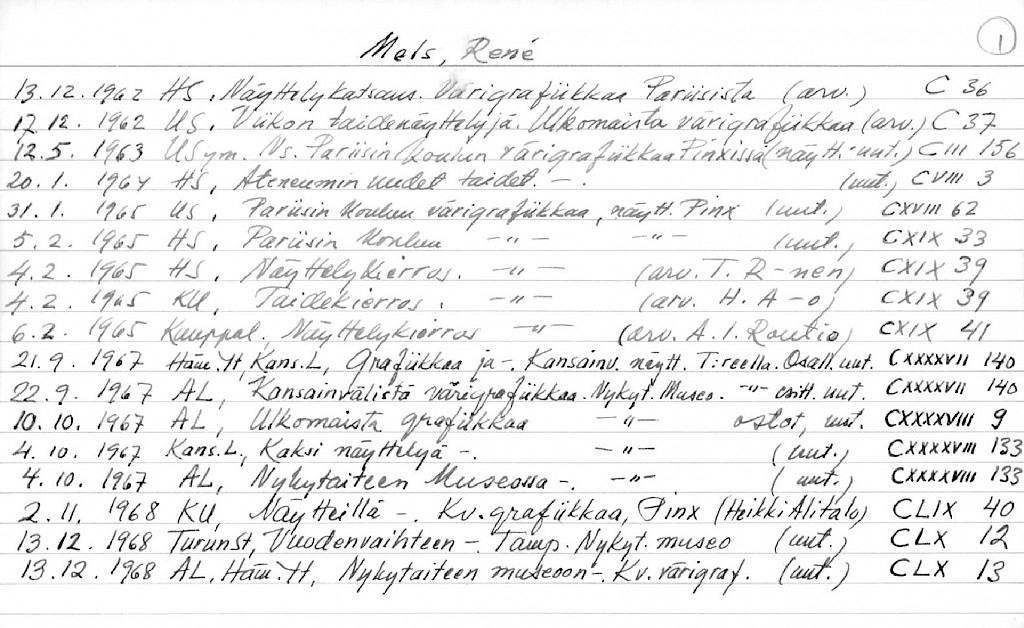 1
Mels, René
13.12.1962 HS, Näyttelykatsaus. Värigrafiikkaa Pariisista (arv.) C 36
17.12.1962 US, Viikon taidenäyttelyjä. Ulkomaista värigrafiikkaa (arv.) C 37
12.5.1963 USym. Ns. Pariisin koulun värigrafiikkaa Pinxissä (näytt. uut.) CIII 156
20.1.1964 HS, Ateneumin uudet taidet. -. (uut.) CVIII 3
31.1.1965 US, Pariisin koulun värigrafiikkaa, näytt. Pinx (uut.) CXVIII 62
5.2.1965 HS, Pariisin koulun -"- -"- (uut.) CXIX 33
4.2.1965 HS, Näyttelykierros. -"- (arv. T. R-nen) CXIX 39
4.2.1965 KU, Taidekierros. -"- (arv. H. A-o) CXIX 39
6.2.1965 Kauppal. Näyttelykierros -"- (arv. A.I. Routio) CXIX 41
21.9.1967 Häm. YH Kans.L, Grafiikkaa ja -. Kansainv. näytt. T:reella. Osall. uut. CXXXXVII 140
22.9.1967 AL, Kansainvälistä värigrafiikkaa. Nykyt. Museo. -"- esitt. uut. CXXXXVII 140
10.10.1967 AL, Ulkomaista grafiikkaa -"- ostot, uut. CXXXXVIII 9
4.10.1967 Kans.L, Kaksi näyttelyä -. -"- (uut.) CXXXXVIII 133
4.10.1967 AL, Nykytaiteen Museossa -. -"- (uut.) CXXXXVIII 133
2.11.1968 KU, Näytteillä -. Kv. grafiikkaa, Pinx (Heikki Alitalo) CLIX 40
13.12.1968 TurunSt, Vuodenvaihteen -. Tamp. Nykyt. museo (uut.) CLX 12
13.12.1968 AL, Häm. YH, Nykytaiteen museoon -. Kv. värigraf. (uut.) CLX 13